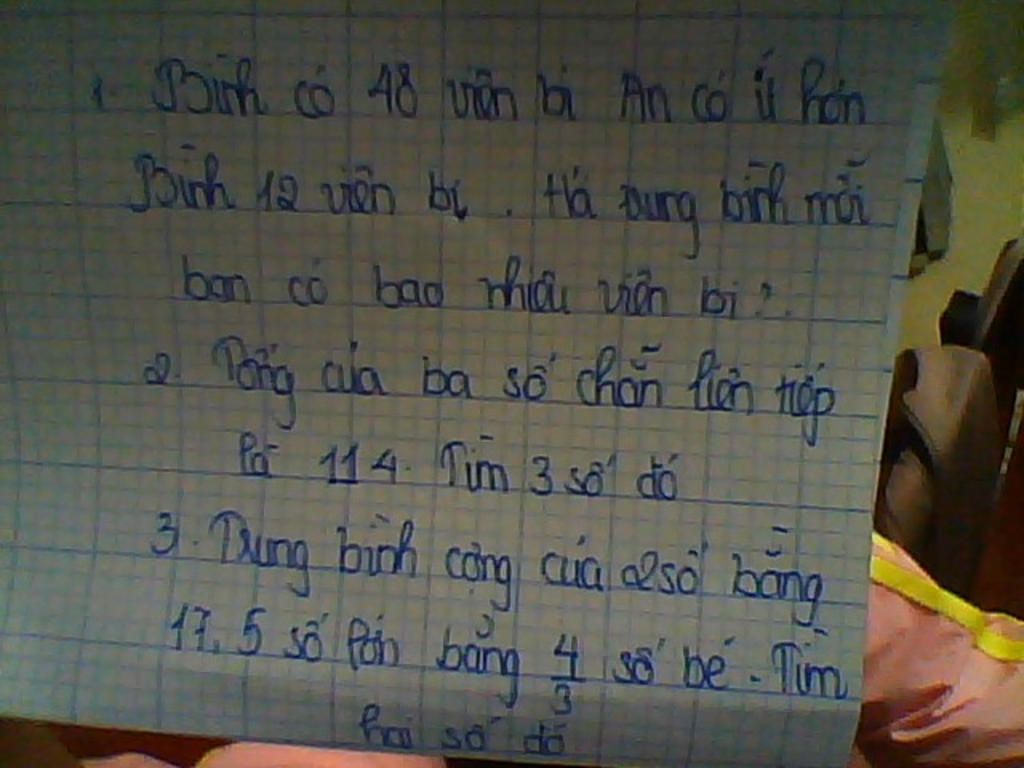 1. Bình có 48 viên bi An có ít hơn
Bình 12 viên bi. Hỏi trung bình mỗi
bạn có bao nhiêu viên bi?
2. Tổng của ba số chẵn liên tiếp
là 114. Tìm 3 số đó
3. Trung bình cộng của 2 số bằng
17,5 số lớn bằng 4/3 số bé. Tìm
hai số đó